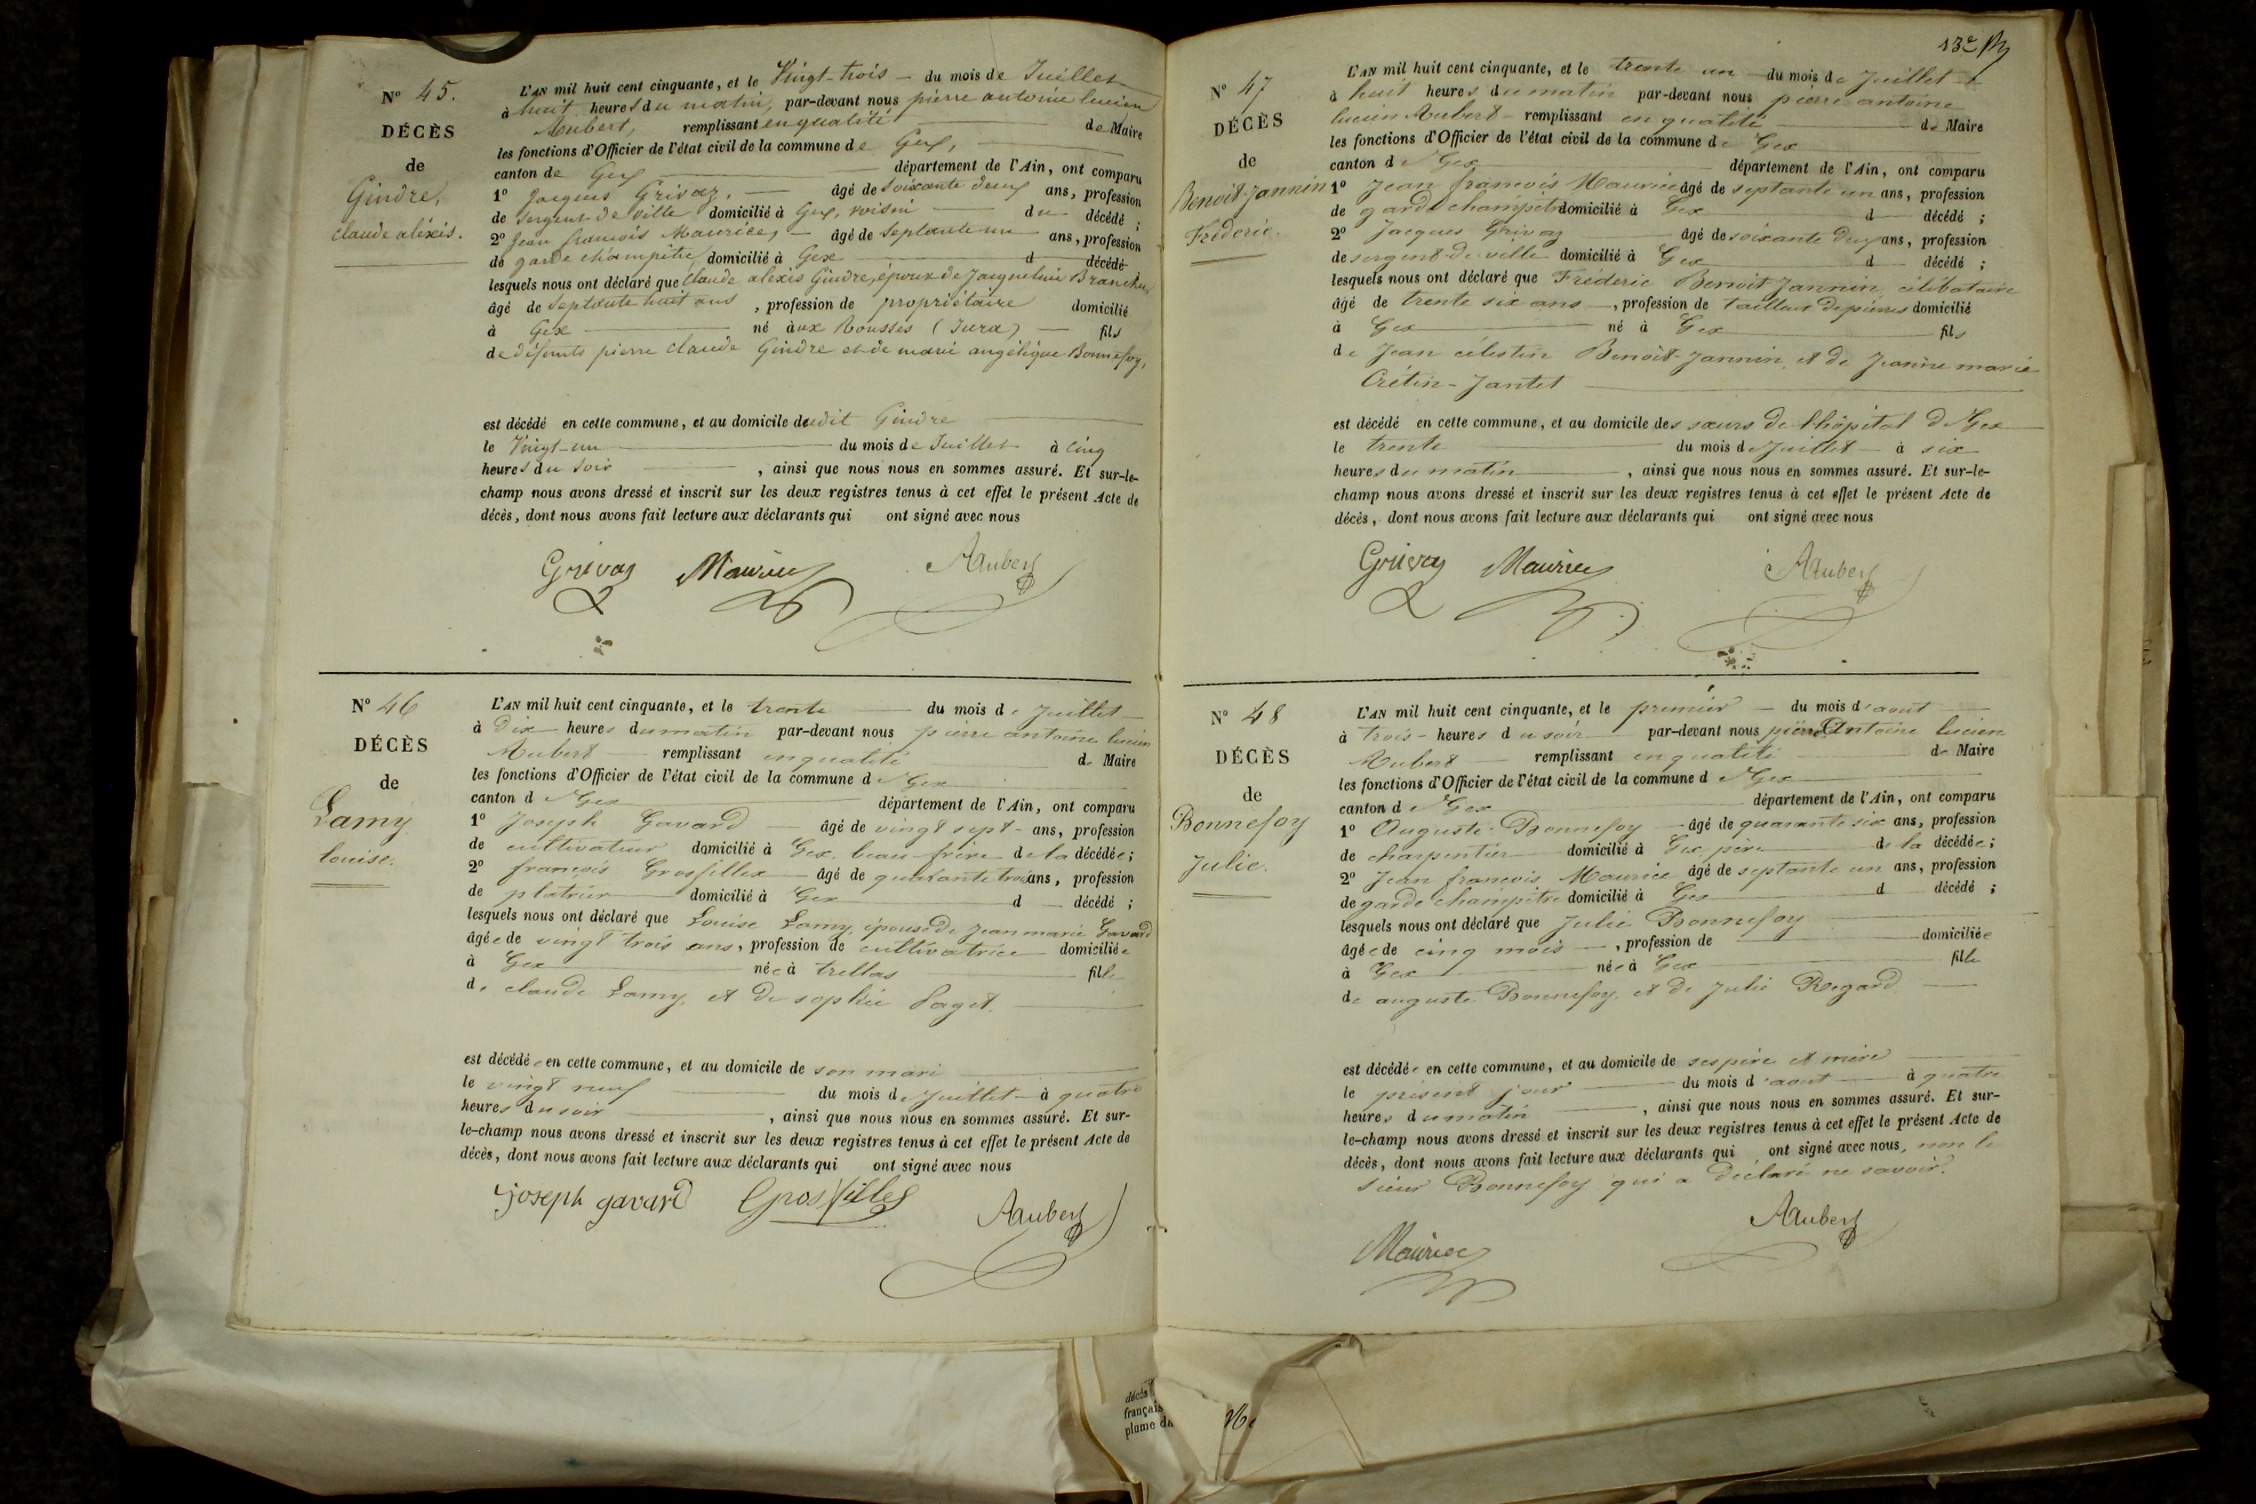 N° 45.
DÉCÈS
de
Gindre,
claude aléxis.
L'AN mil huit cent cinquante, et le Vingt-trois — du mois de Juillet
à huit heures du matin, par-devant nous pierre antoine lucien
Aubert, remplissant en qualité de Maire
les fonctions d'Officier de l'état civil de la commune de Gex,
canton de Gex département de l'Ain, ont comparu
1° Jacques Grivaz, — âgé de soixante deux ans, profession
de sergent de ville domicilié à Gex, voisin du décédé ;
2° Jean françois Maurice, — âgé de septante un ans, profession
de garde champêtre, domicilié à Gex d décédé
lesquels nous ont déclaré que claude alexis Gindre, époux de Jacqueline Branchu
âgé de septante huit ans , profession de propriétaire domicilié
à Gex né aux Rousses (Jura) — fils
de défunts pierre claude Gindre et de marie angélique Bonnefoy,
est décédé en cette commune, et au domicile dudit Gindre
le Vingt-un du mois de Juillet à cinq
heures du soir , ainsi que nous nous en sommes assuré. Et sur-le-
champ nous avons dressé et inscrit sur les deux registres tenus à cet effet le présent Acte de
décès, dont nous avons fait lecture aux déclarants qui ont signé avec nous
Grivaz Maurice AAubert
N° 46
DÉCÈS
de
Lamy
louise.
L'AN mil huit cent cinquante, et le trente du mois de Juillet
à Dix heures du matin par-devant nous pierre antoine lucien
Aubert remplissant en qualité de Maire
les fonctions d'Officier de l'état civil de la commune de Gex
canton de Gex département de l'Ain, ont comparu
1° Joseph Gavard — âgé de vingt sept - ans, profession
de cultivateur domicilié à Gex. beau-frère de la décédée ;
2° françois Grosfillex âgé de quarante trois ans, profession
de platrier domicilié à Gex d décédé ;
lesquels nous ont déclaré que Louise Lamy, épouse de Jean marie Gavard
âgée de vingt trois ans, profession de cultivatrice domiciliée
à Gex née à trellas fille
de claude Lamy, et de sophie Paget.
est décédée en cette commune, et au domicile de son mari
le vingt neuf du mois de Juillet — à quatre
heures du soir , ainsi que nous nous en sommes assuré. Et sur-
le-champ nous avons dressé et inscrit sur les deux registres tenus à cet effet le présent Acte de
décès, dont nous avons fait lecture aux déclarants qui ont signé avec nous
joseph gavard Grosfillex AAubert
13e
N° 47
DÉCÈS
de
Benoit-Jannin
Fréderic.
L'AN mil huit cent cinquante, et le trente un du mois de Juillet
à huit heures du matin par-devant nous pierre antoine
lucien Aubert - remplissant en qualité de Maire
les fonctions d'Officier de l'état civil de la commune de Gex
canton de Gex département de l'Ain, ont comparu
1° Jean françois Maurice âgé de septante un ans, profession
de garde champêtre domicilié à Gex d décédé ;
2° Jacques Grivaz âgé de soixante deux ans, profession
de sergent-de-ville domicilié à Gex d décédé ;
lesquels nous ont déclaré que Fréderic Benoit Jannin, célibataire
âgé de trente six ans —, profession de tailleur de pierres domicilié
à Gex né à Gex fils
de Jean célestin Benoit-Jannin, et de Jeanne marie
Crétin-Jantet
est décédé en cette commune, et au domicile des sœurs de l'hôpital de Gex
le trente du mois de Juillet — à six
heures du matin , ainsi que nous nous en sommes assuré. Et sur-le-
champ nous avons dressé et inscrit sur les deux registres tenus à cet effet le présent Acte de
décès, dont nous avons fait lecture aux déclarants qui ont signé avec nous
Grivaz Maurice AAubert
N° 48
DÉCÈS
de
Bonnefoy
Julie.
L'AN mil huit cent cinquante, et le premier — du mois d'aout
à trois - heures du soir par-devant nous pierre Antoine lucien
Aubert remplissant en qualité de Maire
les fonctions d'Officier de l'état civil de la commune de Gex
canton de Gex département de l'Ain, ont comparu
1° Auguste Bonnefoy — âgé de quarante six ans, profession
de charpentier domicilié à Gex père de la décédée ;
2° Jean françois Maurice âgé de septante un ans, profession
de garde champêtre domicilié à Gex d décédé ;
lesquels nous ont déclaré que Julie Bonnefoy
âgée de cinq mois —, profession de domiciliée
à Gex née à Gex fille
de auguste Bonnefoy, et de Julie Regard
est décédée en cette commune, et au domicile de ses père et mère
le présent jour du mois d'aout à quatre
heures du matin , ainsi que nous nous en sommes assuré. Et sur-
le-champ nous avons dressé et inscrit sur les deux registres tenus à cet effet le présent Acte de
décès, dont nous avons fait lecture aux déclarants qui ont signé avec nous, non le
sieur Bonnefoy qui a déclaré ne savoir.
Maurice AAubert
décès
français
plume da